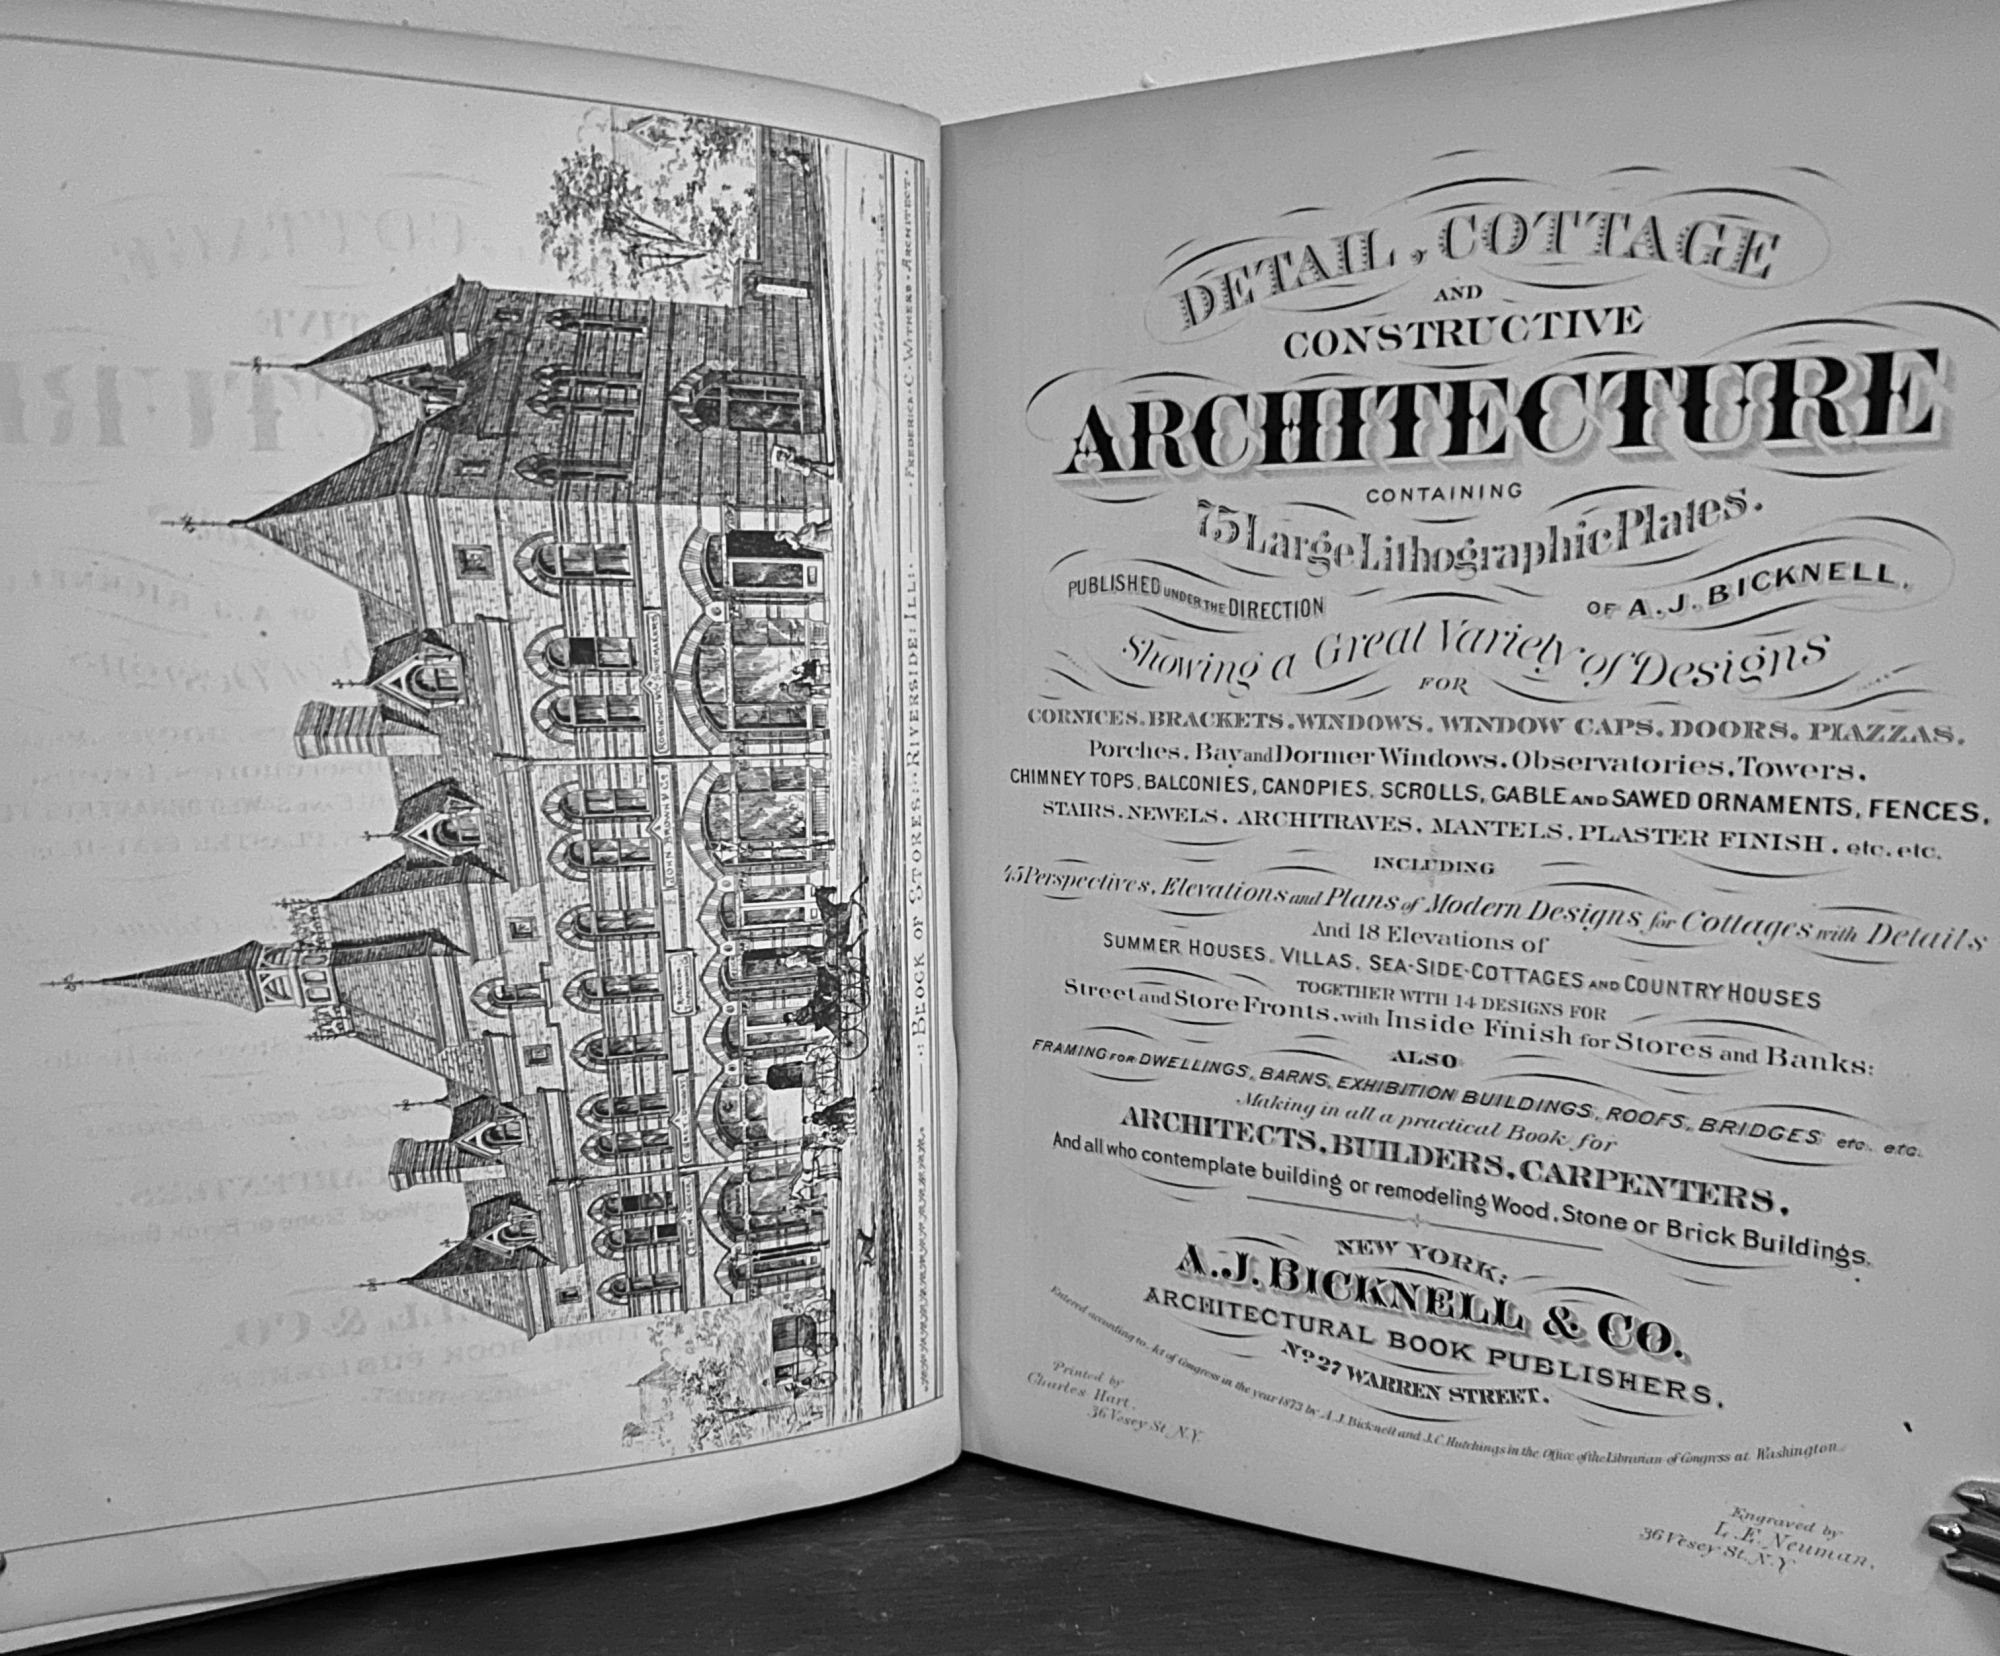 : BLOCK OF STORES: RIVERSIDE: ILL:
FREDERICK · C · WITHERS · ARCHITECT ·
JOHN BROWN & CO
DETAIL, COTTAGE
AND
CONSTRUCTIVE
ARCHITECTURE
CONTAINING
75 Large Lithographic Plates.
PUBLISHED UNDER THE DIRECTION OF A. J. BICKNELL,
Showing a Great Variety of Designs
FOR
CORNICES. BRACKETS. WINDOWS. WINDOW CAPS. DOORS. PIAZZAS.
Porches. Bay and Dormer Windows. Observatories. Towers.
CHIMNEY TOPS, BALCONIES, CANOPIES, SCROLLS, GABLE AND SAWED ORNAMENTS, FENCES,
STAIRS. NEWELS. ARCHITRAVES. MANTELS. PLASTER FINISH. etc. etc.
INCLUDING
45 Perspectives, Elevations and Plans of Modern Designs for Cottages with Details
And 18 Elevations of
SUMMER HOUSES, VILLAS, SEA-SIDE-COTTAGES AND COUNTRY HOUSES
TOGETHER WITH 14 DESIGNS FOR
Street and Store Fronts. with Inside Finish for Stores and Banks:
ALSO
FRAMING FOR DWELLINGS, BARNS, EXHIBITION BUILDINGS, ROOFS, BRIDGES etc. etc.
Making in all a practical Book for
ARCHITECTS, BUILDERS, CARPENTERS,
And all who contemplate building or remodeling Wood, Stone or Brick Buildings.
NEW YORK:
A. J. BICKNELL & CO.
ARCHITECTURAL BOOK PUBLISHERS,
No 27 WARREN STREET.
Entered according to Act of Congress in the year 1873 by A. J. Bicknell and J. C. Hutchings in the Office of the Librarian of Congress at Washington.
Printed by
Charles Hart.
36 Vesey St. N.Y.
Engraved by
L. E. Neuman.
36 Vesey St. N.Y